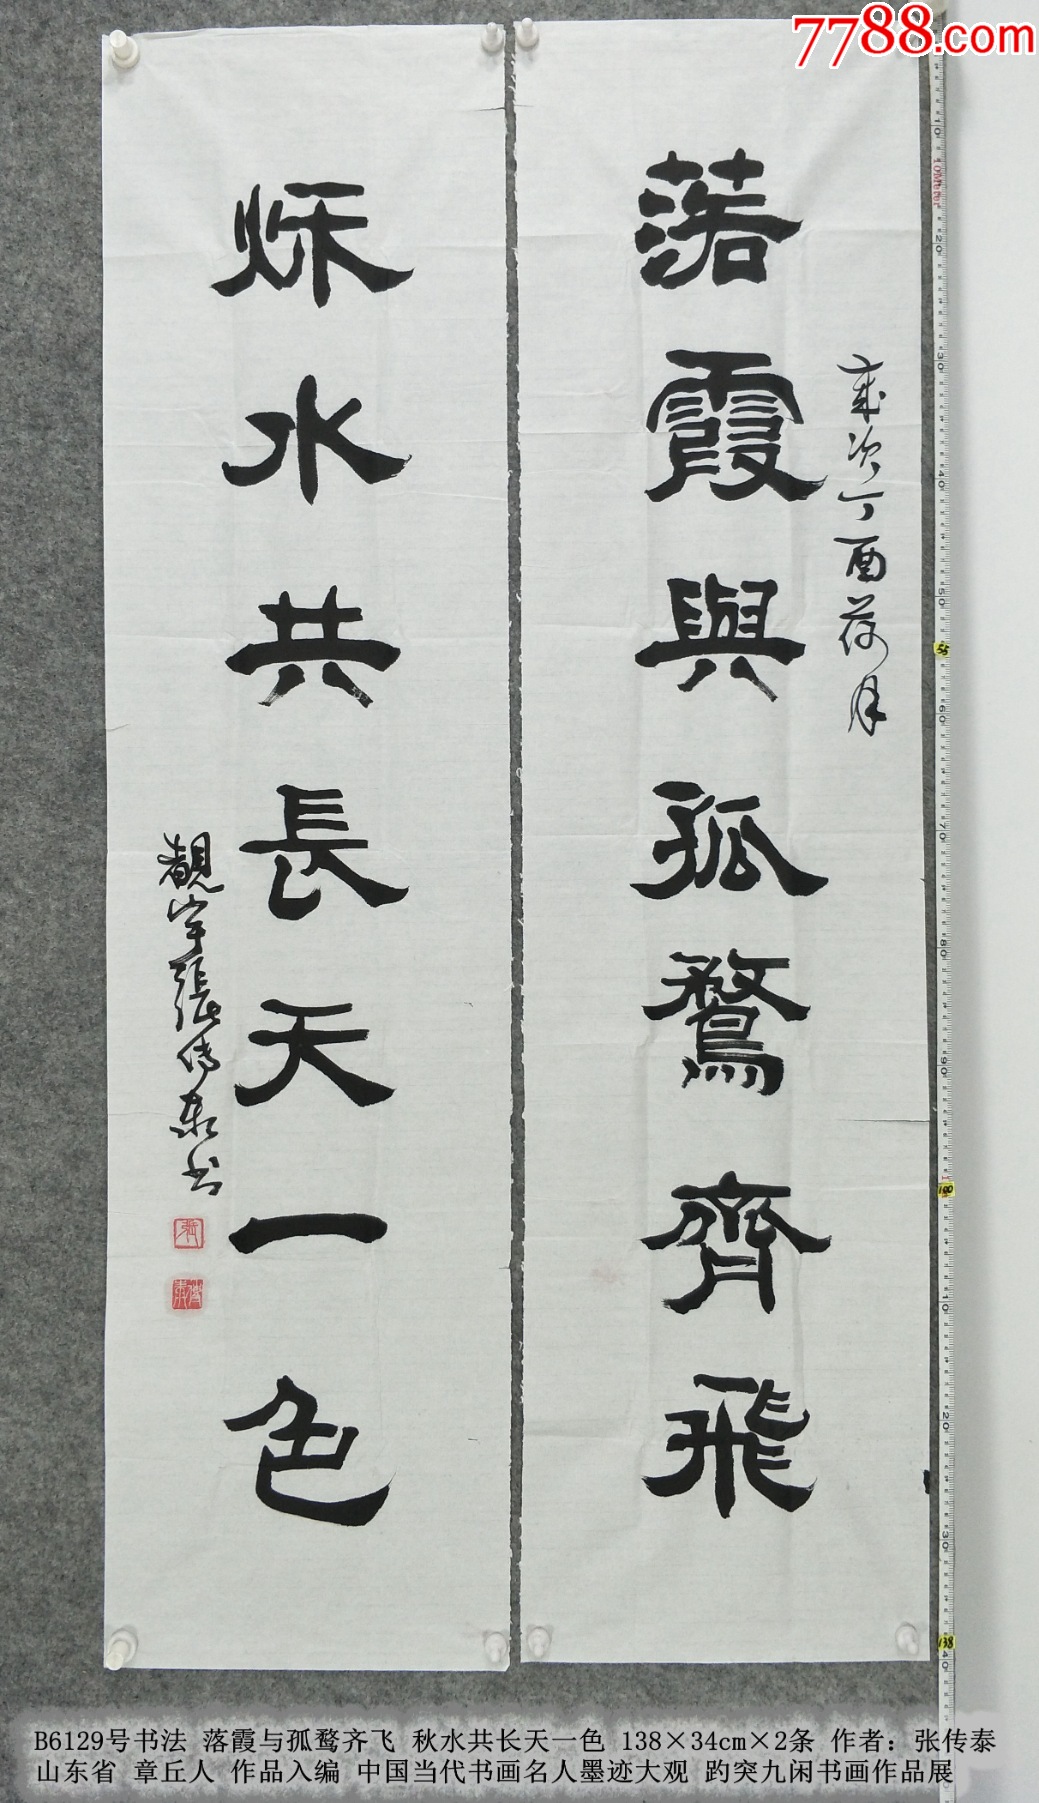 7788.com
落霞與孤鶩齊飛
歲次丁酉荷月
秌水共長天一色
靚宇張传泰书
55
100
138
B6129号书法 落霞与孤鹜齐飞 秋水共长天一色 138×34cm×2条 作者：张传泰
山东省 章丘人 作品入编 中国当代书画名人墨迹大观 趵突九闲书画作品展